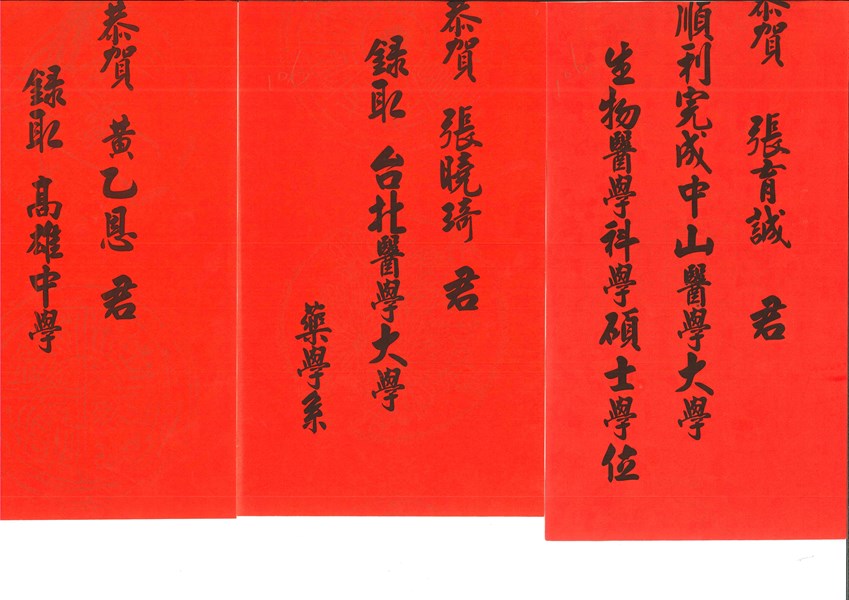 恭賀 張育誠 君
順利完成中山醫學大學
生物醫學科學碩士學位
恭賀 張曉琦 君
錄取 台北醫學大學
藥學系
恭賀 黃乙恩 君
錄取 高雄中學